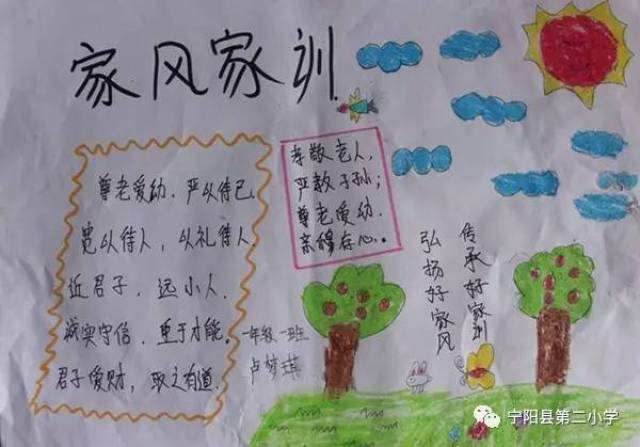 家风家训
尊老爱幼、严以待己,
宽以待人,以礼待人.
近君子,远小人.
诚实守信,重于才能。
君子爱财,取之有道.
孝敬老人,
严教子孙;
尊老爱幼.
亲穆存心。
一年级一班
卢梦琪
传承好家训
弘扬好家风
宁阳县第二小学